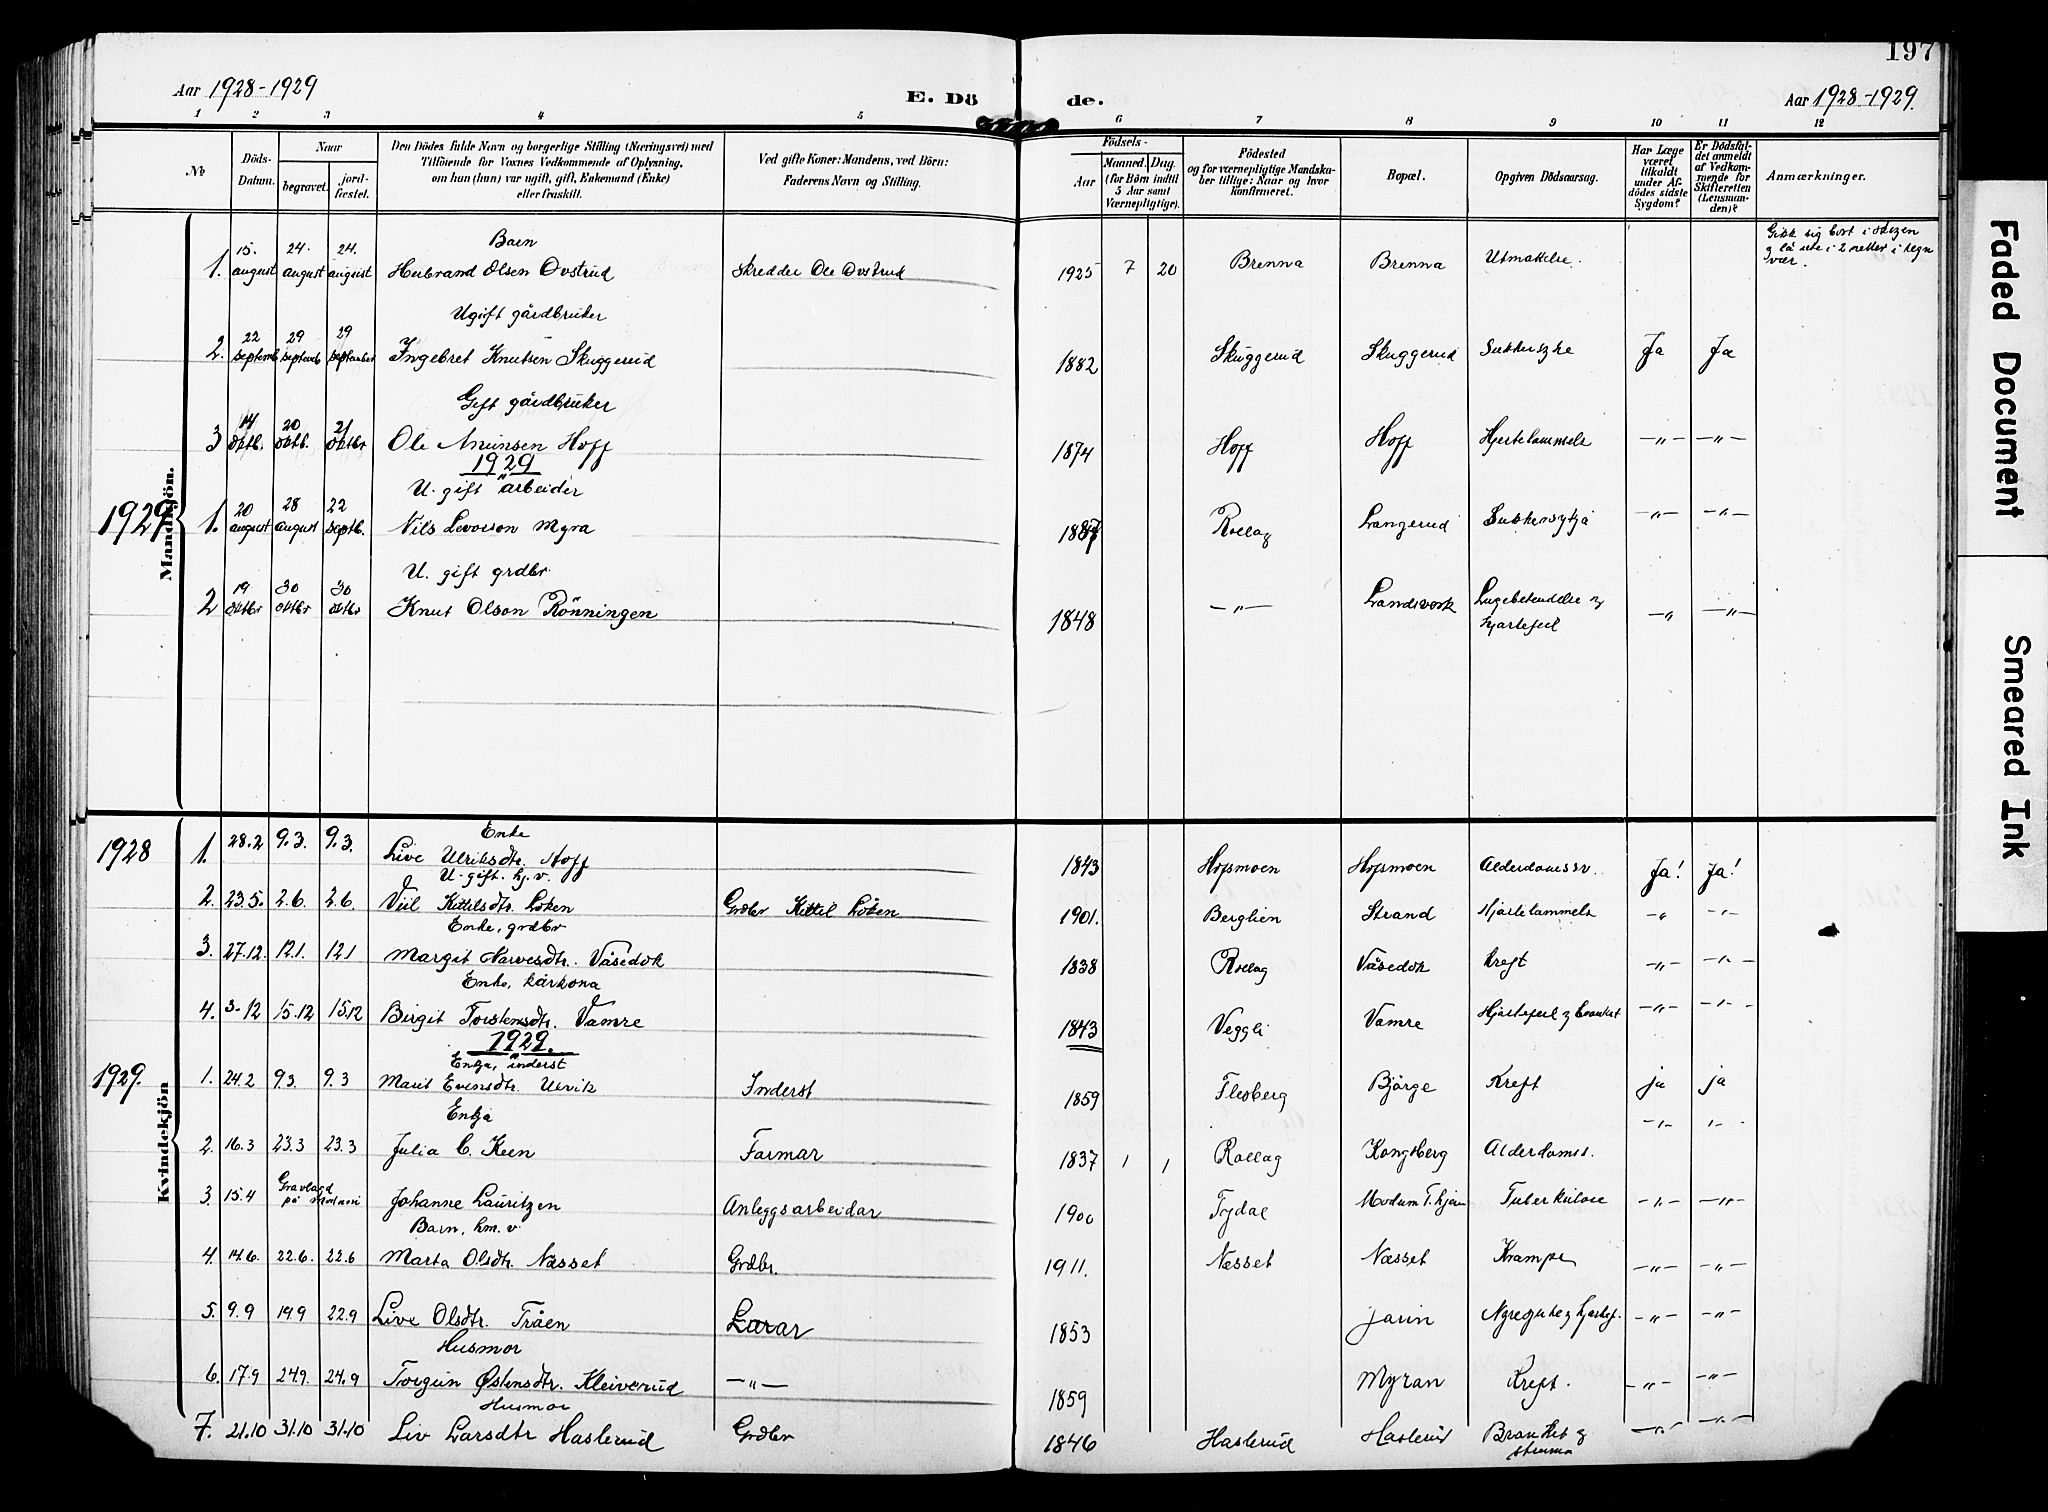 197
Aar 1928-1929
E. Dö de.
Aar 1928-1929.
1 2 3 4 5 6 7 8 9 10 11 12
No
Döds-Datum.
Naar
begravet.
jord-fæstet.
Den Dödes fulde Navn og borgerlige Stilling (Næringsvei) med
Tilföiende for Voxnes Vedkommende af Oplysning,
om han (hun) var ugift, gift, Enkemand (Enke)
eller fraskilt.
Ved gifte Koner: Mandens, ved Börn:
Faderens Navn og Stilling.
Födsels-
Aar
Maaned. Dag.
(for Börn indtil
5 Aar samt
Værnepligtige).
Födested
og for værnepligtige Mandska-
ber tillige: Naar og hvor
konfirmeret.
Bopæl.
Opgiven Dödsaarsag.
Har Læge
været
tilkaldt
under Af-
dödes sidste
Sygdom?
Er Dödsfal-
det anmeldt
af Vedkom-
mende for
Skifteretten
(Lensman-
den)?
Anmærkninger.
Mandkjön.
Barn
1. 15. august 24. august 24. august Herbrand Olsen Ovstrud Skredder Ole Ovstrud 1925 7 20 Brenna Brenna Utmattelse. Gikk sig bort i skogen
og lå ute i 2 netter i regn
vær.
Ugift gårdbruker
2. 22 septemb 29 septemb 29 september Ingebret Knutsen Skuggerud 1882 Skuggerud Skuggerud Sukkersyke Ja Ja
Gift gårdbruker
3 14 oktb. 20 oktb. 21 oktbr Ole Amunsen Hoff 1874 Hoff Hoff Hjertelammelse -"- -"-
1929
U. gift arbeider
1929 1. 20 august 28 august 22 septb. Nils Levorson Myra 1887 Rollag Langerud Sukkersykja -"- -"-
U. gift grdbr
2 19 oktbr 30 oktbr 30 oktbr Knut Olson Rönningen 1848 -"- Landsverk Lugebetendelse og
hjartefeil -"- -"-
Kvindekjön
Enke
1928 1. 28.2 9.3. 9.3. Live Ulriksdtr. Hoff 1843 Hofsmoen Hofsmoen Alderdomssv. Ja! Ja!
U. gift. hj. v.
2. 23.5. 2.6. 2.6. Kittilsdtr. Löken Grdbr Kittil Löken 1901. Berglien Strand Hjartelammelse -"- -"-
Enke, grdbr
3. 27.12. 12.1. 12.1 Margit Narvesdtr. Våsedok 1838 Rollag Våsedok Kreft -"- -"-
Enke, kårkona
4. 3-12 15.12 15.12 Birgit Torstensdtr. Vamre 1843 Veggli Vamre Hjartefeil og bronkit -"- -"-
1929.
Enkja, inderst
1929. 1. 24.2 9.3. 9.3 Marit Evensdtr. Ulvik Inderst 1859 Flesberg Björge Kreft ja ja
Enkja
2. 16.3 23.3 23.3 Julia C. Keen Farmar 1837 1 1 Rollag Kongsberg Alderdomss. -"- -"-
3. 15.4 Gravlagd
på Johanne Lauritzen Anleggsarbeidar 1900 Tydal Modum T. hjem Tuberkulose -"- -"-
Barn, hm. v.
4. 14.6. 22.6. 22.6 Marta Olsdtr. Næsset Grdbr. 1911. Næsset Næsset Krampe -"- -"-
5. 9.9 19.9 22.9 Live Olsdtr. Tråen Lærar 1853 Jarin -"- -"-
Husmor
6. 17.9 24.9. 24.9 Torgun Østensdtr. Kleiverud -"- 1859 Myran Kreft. -"- -"-
Husmor
7. 21.10 31.10 31.10 Liv Larsdtr Haslerud Grdbr 1846 Haslerud Haslerud Bronkit og
struma -"- -"-
Faded Document
Smeared Ink